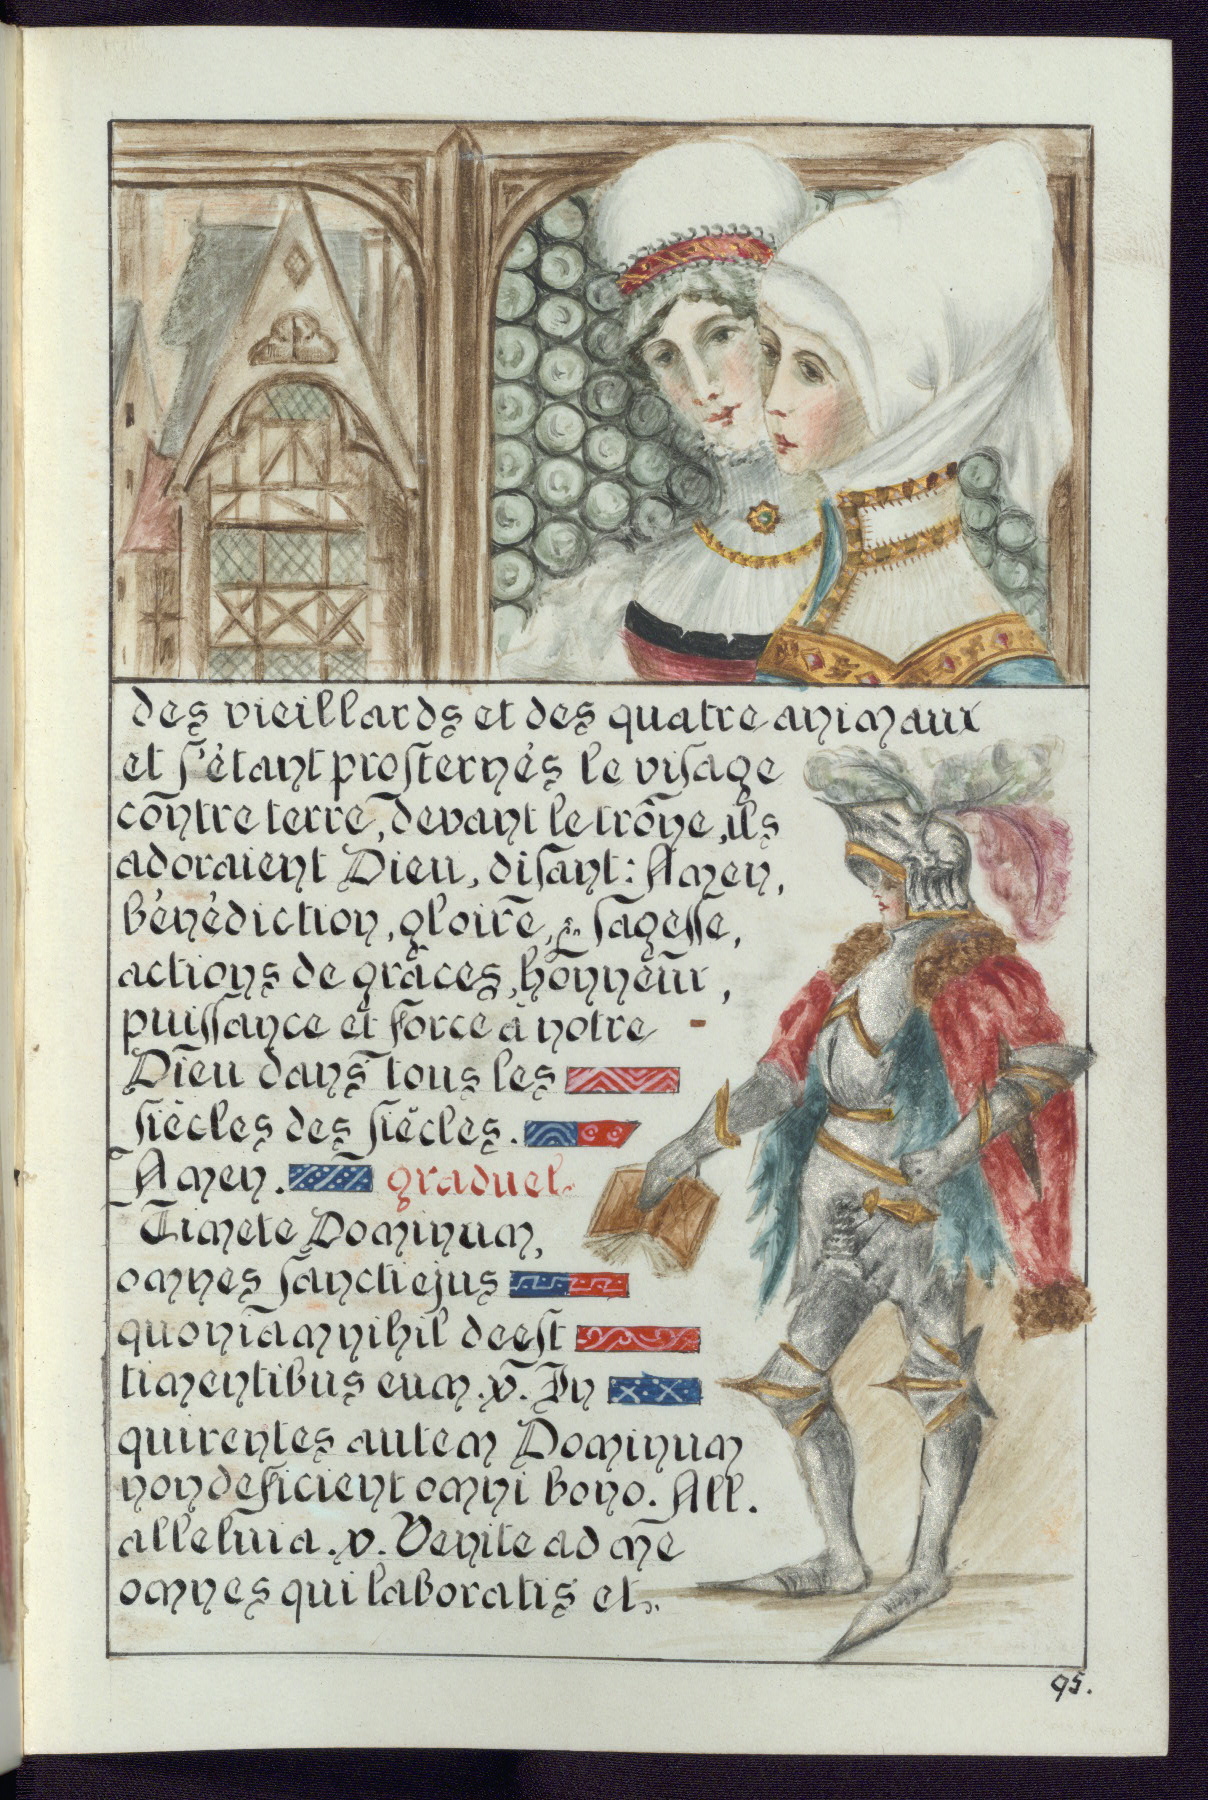 des vieillards et des quatre animaux
et s'étant prosternés le visage
contre terre, devant le trône, ils
adoraient Dieu, disant: Amen,
bénédiction, gloire, & sagesse,
actions de grâces, honneur,
puissance et force à notre
Dieu dans tous les
siècles des siècles.
Amen. graduel.
Timete Dominum,
omnes sancti ejus
quoniam nihil deest
timentibus eum. v. In
quirentes autem Dominum
non deficient omni bono. All.
alleluia. v. Venite ad me
omnes qui laboratis et
95.